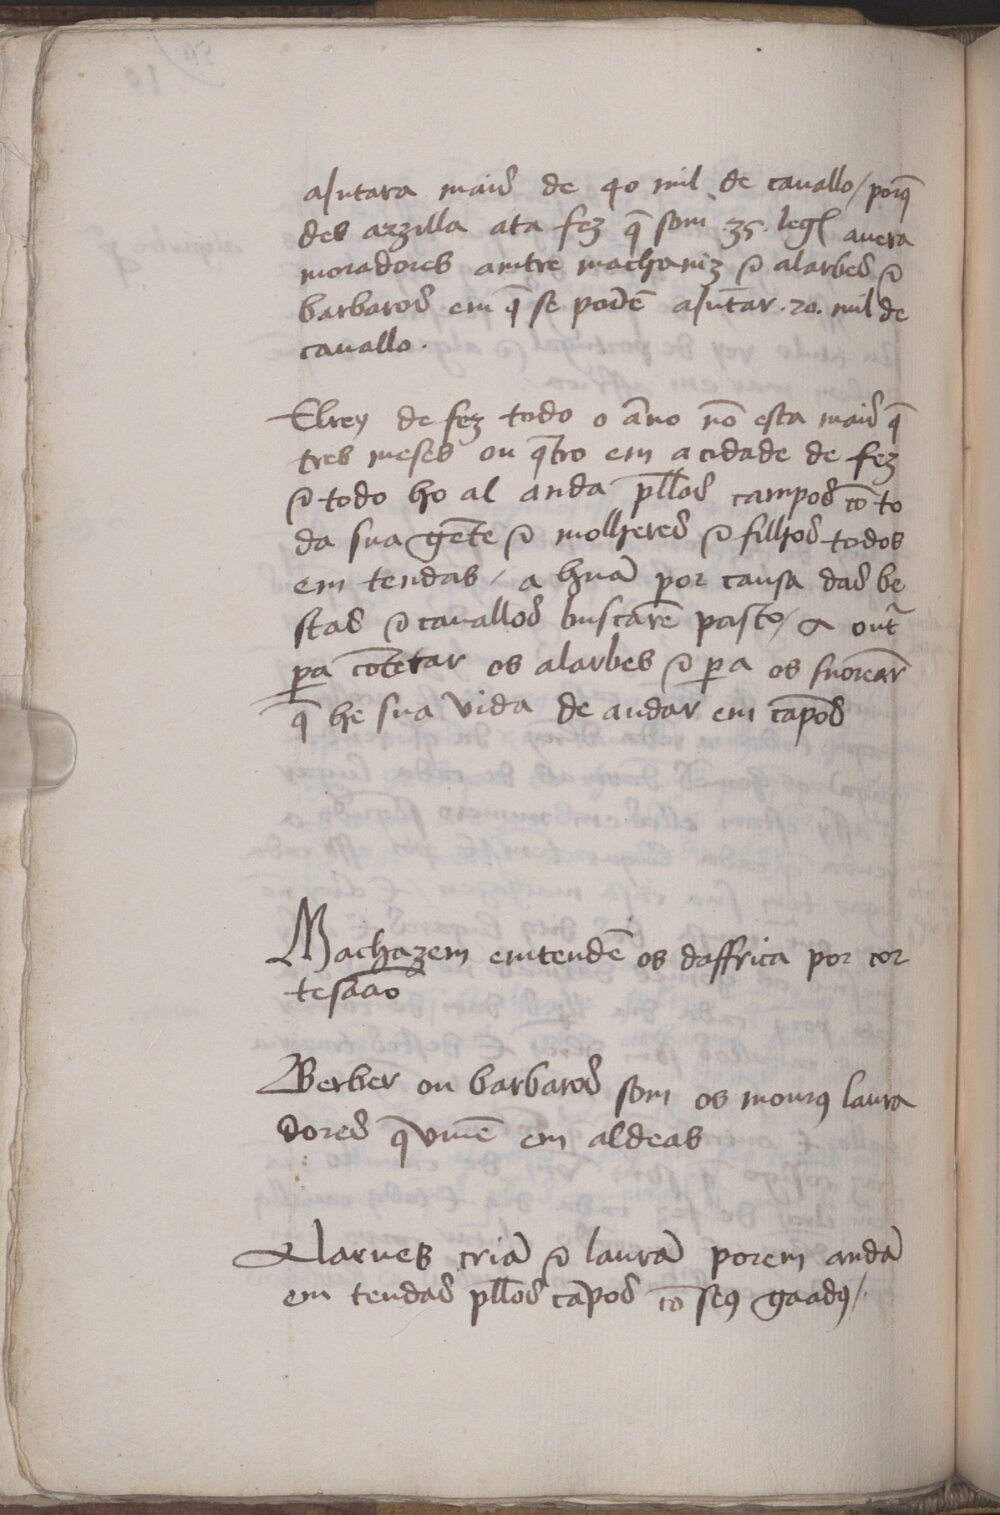 aJuntara mais de 40 mil de cauallo / porq̃
des arzilla ata fez q̃ som .35. legᷓ auera
moradores antre machaniz & alarbes &
barbaros em q̃ se podẽ aJuntar .20. mil de
cauallo .
Elrey de fez todo o ãno nõ esta mais q̃
tres meses ou q̃tro em a cidade de fez
& todo ho al anda pllos campos cõ to
da sua gẽte & molheres & filhos todos
em tendas / a hũa por causa das be
stas & cauallos buscarẽ pasto / & out̃
pa cõtẽtar os alarbes & pa os
q̃ he sua vida de andar em cãpos
Machazem emtendẽ os daffrica por cor
tesaão
Berber ou barbaros som os mourꝰ laura
dores q̃ viuẽ em aldeas
Alarues criã & laurã porem andã
em tendas pllos cãpos cõ seꝰ gaadꝰ /.